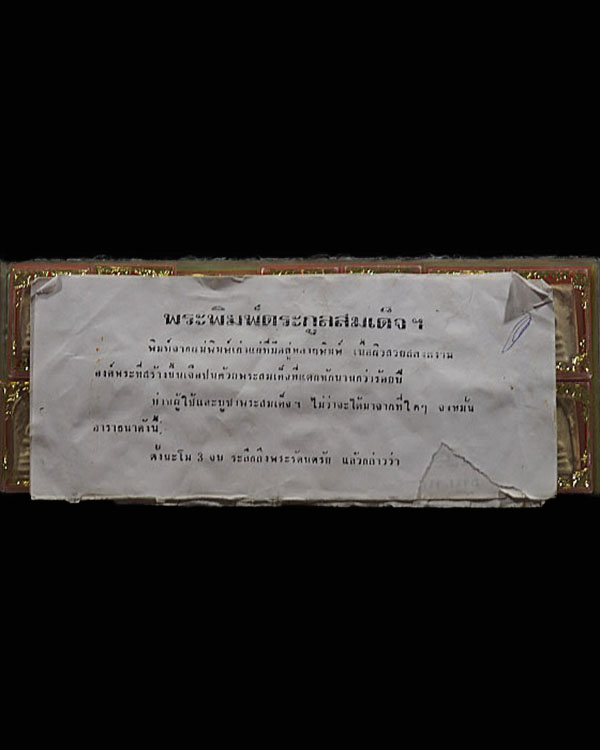 พระพิมพ์ตระกูลสมเด็จฯ
พิมพ์จากแม่พิมพ์เก่าแก่ที่มีอยู่หลายพิมพ์ เนื้อผิวสวยสดงดงาม
องค์พระที่สร้างขึ้นเจือปนด้วยพระสมเด็จที่แตกหักนานกว่าร้อยปี
ท่านผู้ใช้และบูชาพระสมเด็จฯ ไม่ว่าจะได้มาจากที่ใดๆ จงหมั่น
อาราธนาดังนี้.
ตั้งนะโม 3 จบ ระลึกถึงพระรัตนตรัย แล้วกล่าวว่า